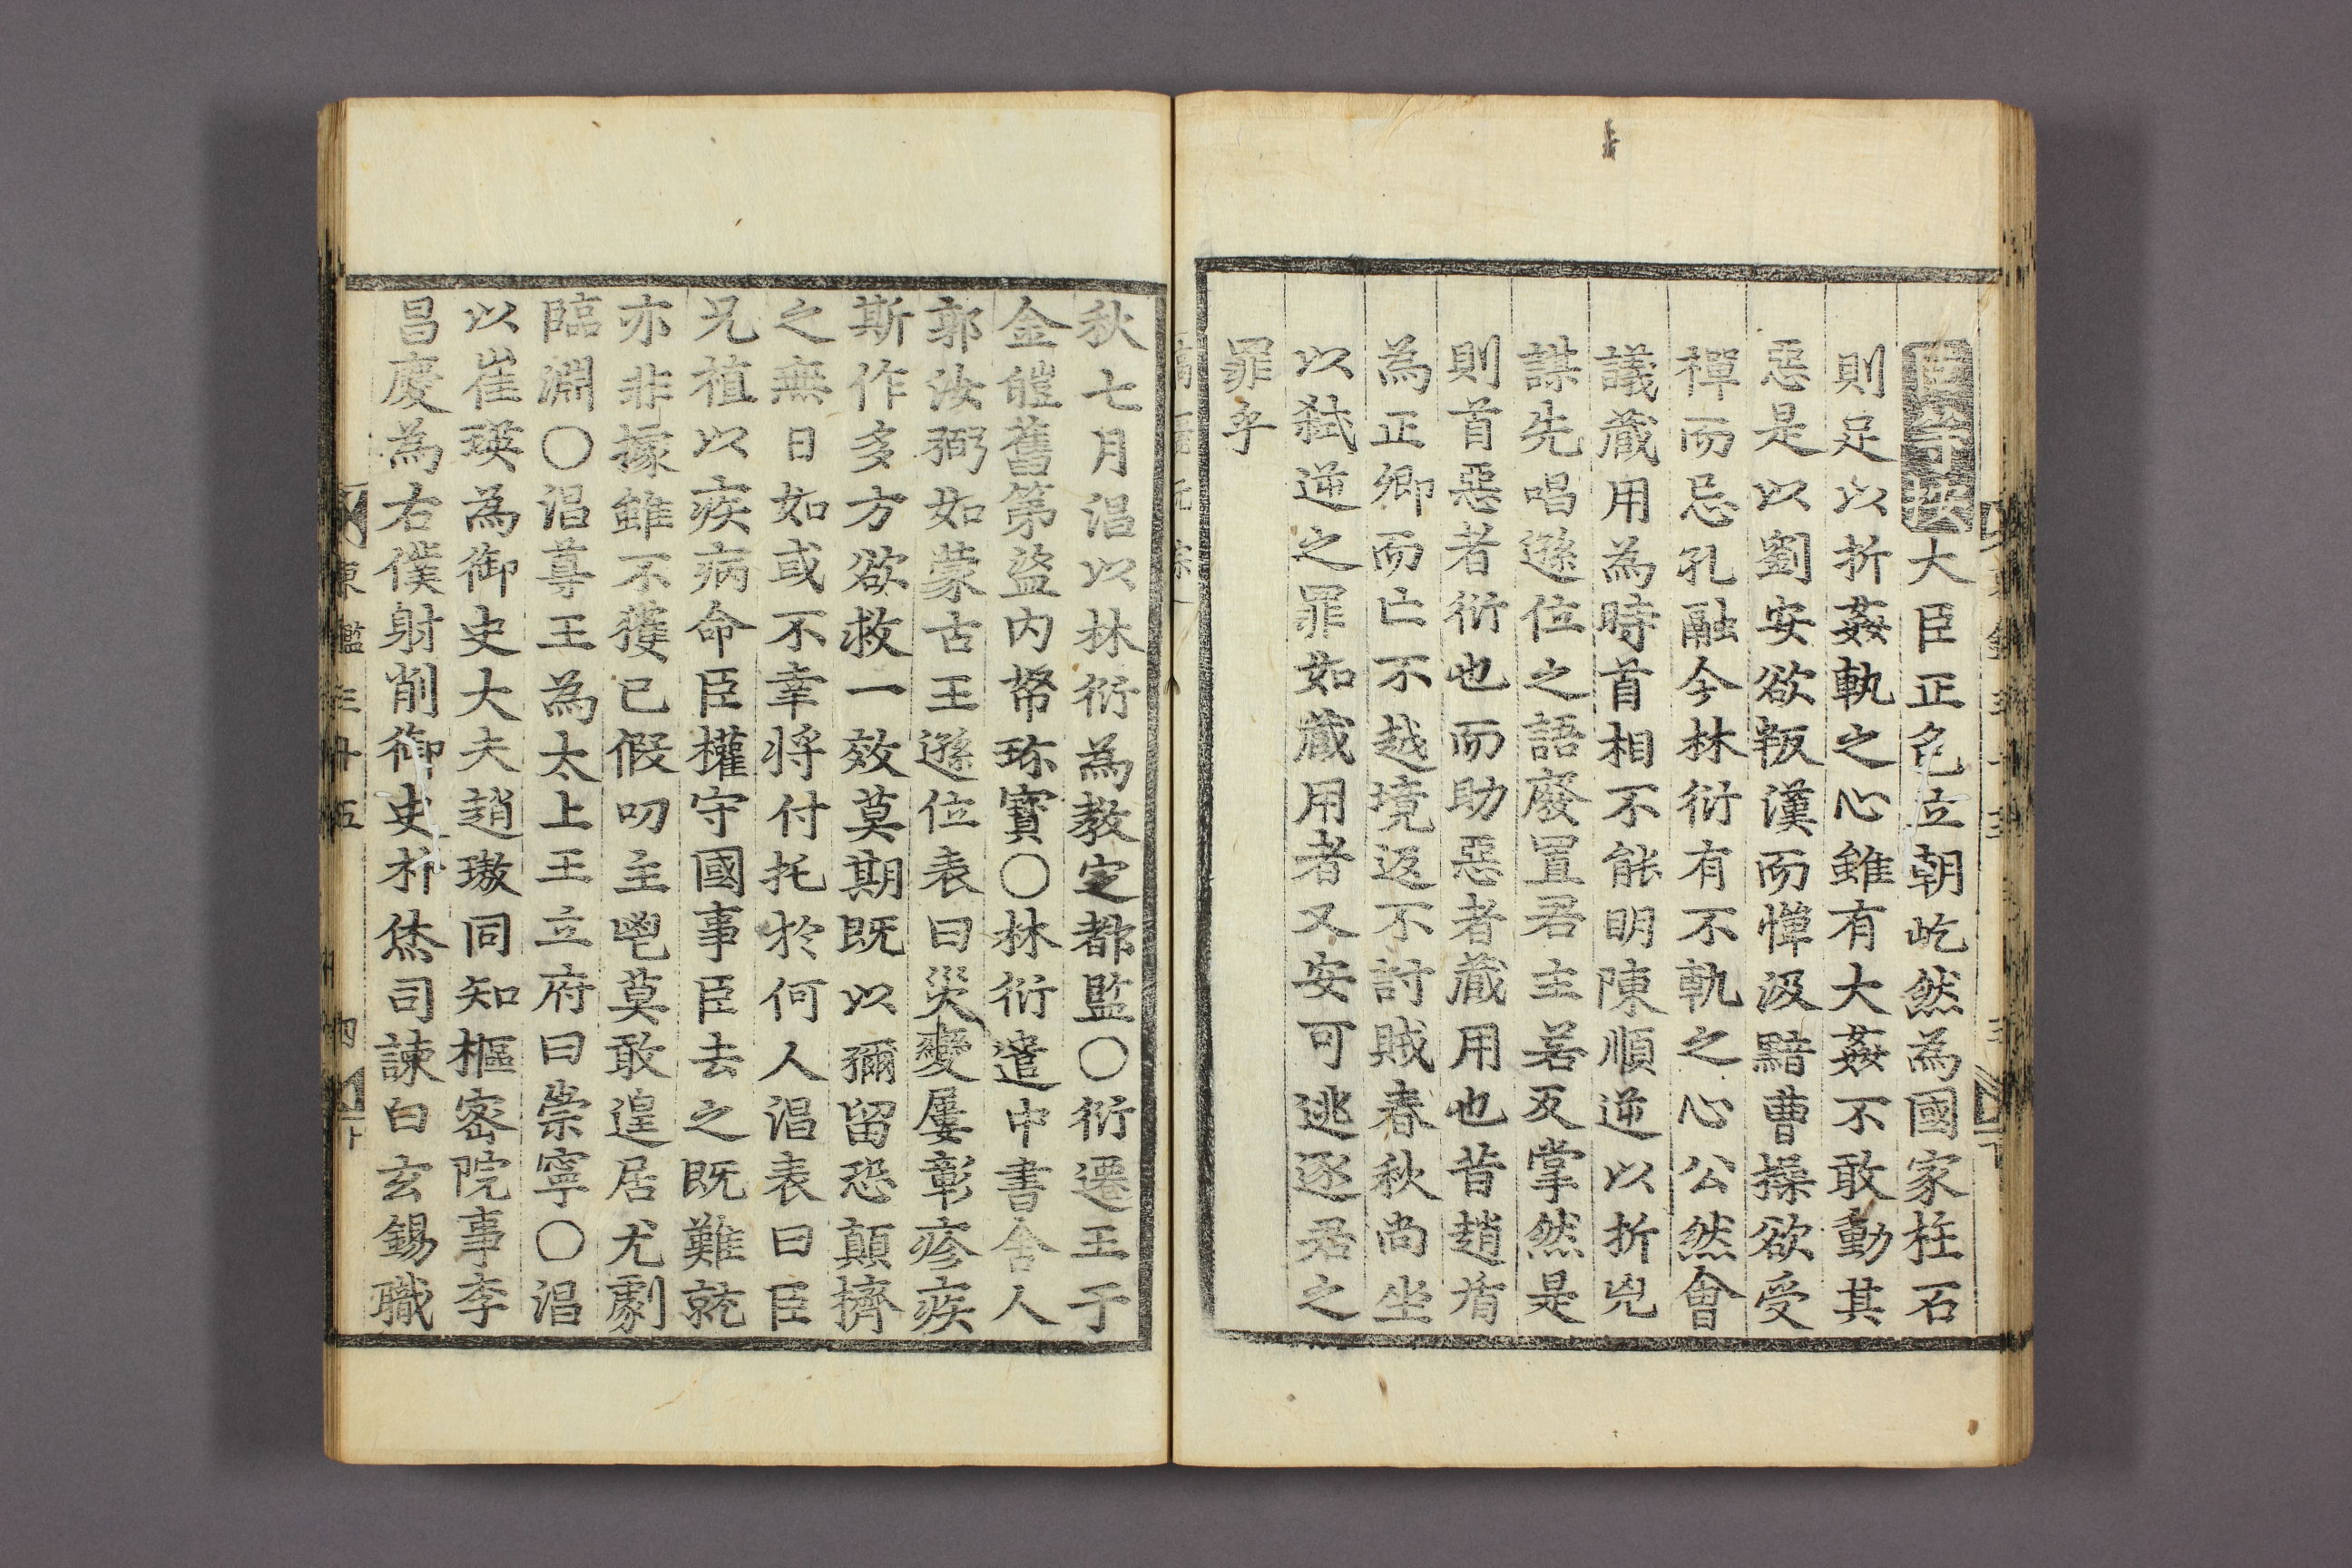 臣等按大臣正色立朝屹然為國家柱石
則足以折姦軌之心雖有大姦不敢動其
惡是以劉安欲叛漢而憚汲黯曹操欲受
禪而忌孔融今林衍有不軌之心公然會
議蔵用為時首相不能明陳順逆以折兇
謀先唱遜位之語廢置君主若反掌然是
則首惡者衍也而助惡者蔵用也昔趙盾
為正卿而亡不越境返不討賊春秋尚坐
以弑逆之罪如蔵用者又安可逃逐君之
罪乎
秋七月淐以林衍為教定都監〇衍遷王于
金皚舊第盜内帑珎寳〇林衍遣中書舍人
郭汝弼如蒙古王遜位表曰災變屢彰疹疾
斯作多方欲救一效莫期既以彌留恐顛擠
之無日如或不幸将付托於何人淐表曰臣
兄植以疾病命臣權守國事臣去之既難就
亦非據雖不獲已假叨主鬯莫敢遑居尤劇
臨淵〇淐尊王為太上王立府曰崇寧〇淐
以崔瑛為御史大夫趙璈同知樞密院事李
昌慶為右僕射削御史朴烋司諫白玄錫職
東鑑三十五 四